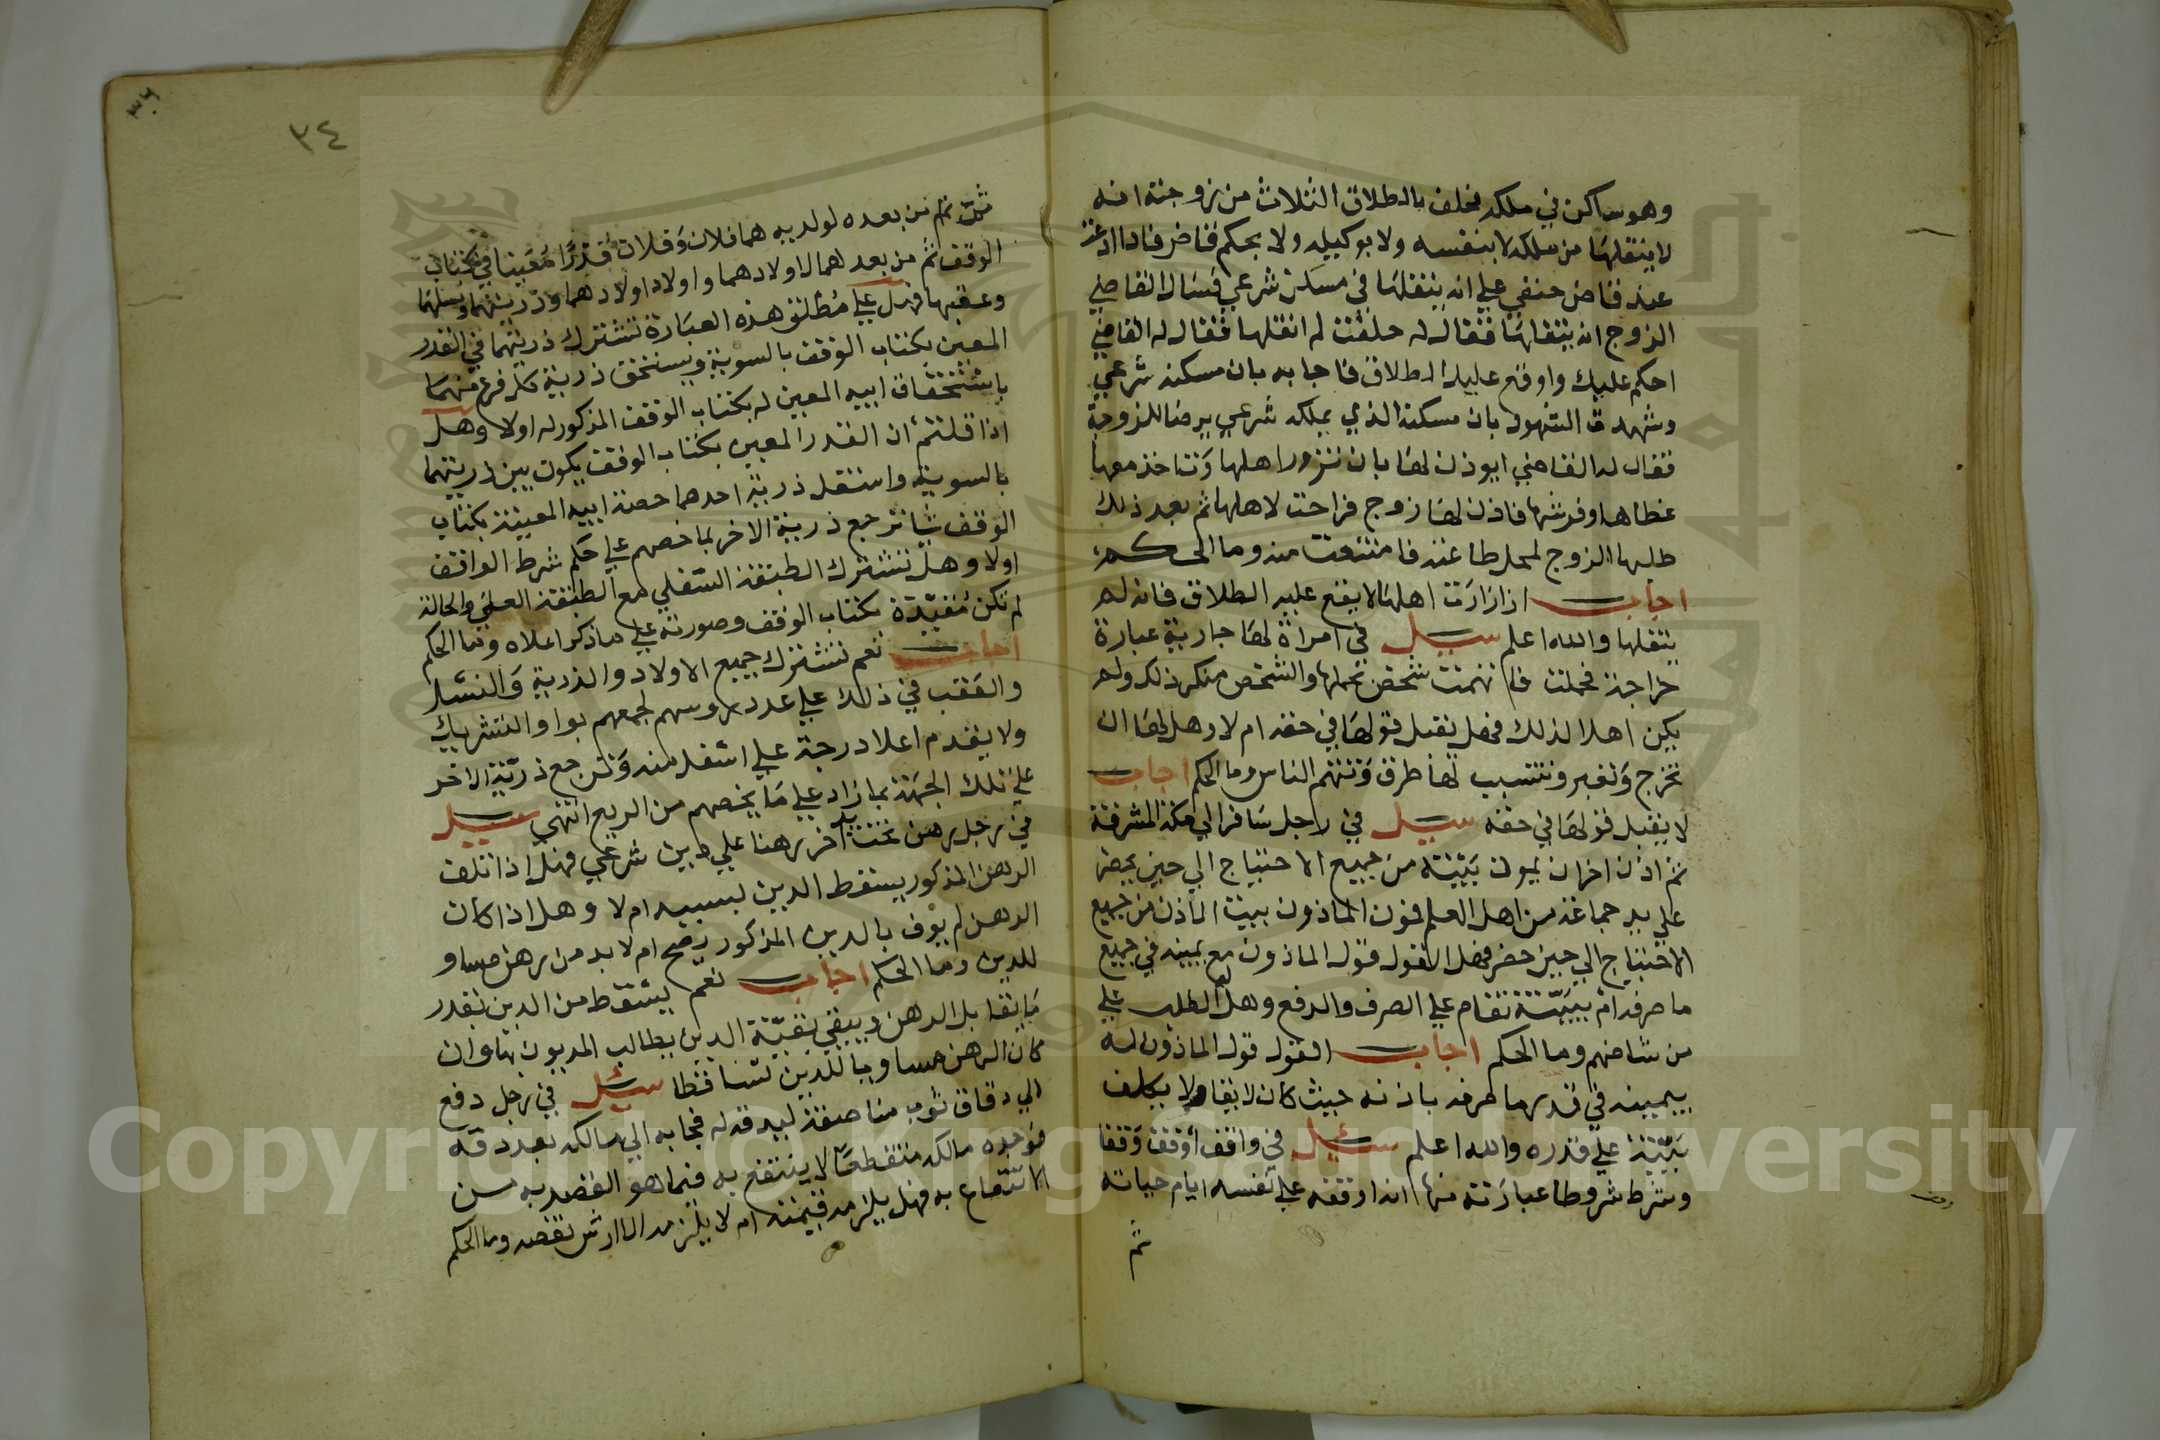 وهو ساكن في ملكه فحلف بالطلاق الثلاث من زوجته انه
لا ينقلها من ملكه لا بنفسه ولا بوكيله ولا بحكم قاض فادا ادعت
عند قاض حنفي علي انه ينقلها في مسكن شرعي فسال القاضي
الزوج ان ينقلها فقال له حلفت لم انقلها فقال له القاضي
احكم عليك واوقع عليك الطلاق فاجابه بان مسكنه شرعي
وشهدت الشهود بان مسكنه الذي بملكه شرعي برضا للزوجة
فقال له القاضي ايوذن لها بان تزور اهلها وتاخذ معها
غطاها وفرشها فاذن لها زوج فراحت لاهلها ثم بعد ذلك
طلبها الزوج لمحل طاعته فامتنعت منه وما الحكم
اجاب اذا زارت اهلها لا يقع عليه الطلاق فانه لم
ينقلها والله اعلم سيل في امراة لها جارية عبارة
خراجة فحملت فاتهمت شخص بحملها والشخص منكر ذلك ولم
يكن اهلا لذلك فهل يقبل قولها في حقه ام لا وهل لها ان
تخرج وتعبر وتتسبب لها طرق وتتهم الناس وما الحكم اجاب
لا يقبل قولها في حقه سيل في راجل سافر الي مكة المشرفة
ثم اذن اخر ان يمون بيته من جميع الاحتياج الي حين يحضر
علي يد جماعة من اهل العلم فمون الماذون بيت الاذن من جميع
الاحتياج الي حين حضر فهل القول قول الماذون مع يمينه في جميع
ما صرفه ام ببينة تقام علي الصرف والدفع وهل له الطلب علي
من شا منهم وما الحكم اجاب القول قول الماذون له
بيمينه في قدر ما صرفه باذنه حيث كان لايقا ولا يكلف
بينة علي قدره والله اعلم سئل في واقف اوقف وقفا
وشرط شروطا عبارته منها انه اوقفه علي نفسه ايام حياته
ثم
٣٤
ثم من بعده لولديه هما فلان وفلان قدرا معينا في كتاب
الوقف ثم من بعدهما لاولادهما واولاد اولادهما وذريتهما ونسلهما
وعقبها فهل علي مطلق هذه العبارة تشترك ذريتهما في القدر
المعين بكتاب الوقف بالسوية ويستحق ذرية كل فرع منهما
باستحقاق ابيه المعين له بكتاب الوقف المذكور له اولا وهل
اذا قلتم ان القدر المعين بكتاب الوقف يكون بين ذريتهما
بالسوية واستقل ذرية احدهما حصة ابيه المعينة بكتاب
الوقف ترجع ذرية الاخر بما خصهم علي حكم شرط الواقف
اولا وهل تشترك الطبقة السفلي مع الطبقة العليا والحالة
لم تكن مقيدة بكتاب الوقف وصورته علي ما ذكر اعلاه وما الحكم
اجاب نعم تشترك جميع الاولاد والذرية والنسل
والعقب في ذلك علي عدد روسهم لجمعهم بواو التشريك
ولا يقدم اعلا درجة علي اسفل منه وترجع ذرية الاخر
علي تلك الجهة بما زاد علي ما يخصهم من الريع انتهي سيل
في رجل رهن تحت يد آخر رهنا علي دين شرعي فهل اذا تلف
الرهن المذكور يسقط الدين بسببه ام لا وهل اذا كان
الرهن لم يوف بالدين المذكور يصح ام لا بد من رهن مساو
للدين وما الحكم اجاب نعم يسقط من الدين بقدر
ما يقابل الرهن ويبقي بقية الدين يطالب المديون بها وان
كان الرهن مساويا للدين تساقطا سئل في رجل دفع
الي دقاق ثوب مناصفة ليدقه له فجا به الي مالكه بعد دقه
فوجده مالكه متقطعا لا ينتفع به فيما هو القصد به من
الانتفاع به فهل يلزمه قيمته ام لا يلزمه الا ارش نقصه وما الحكم
Copyright © King Saud University